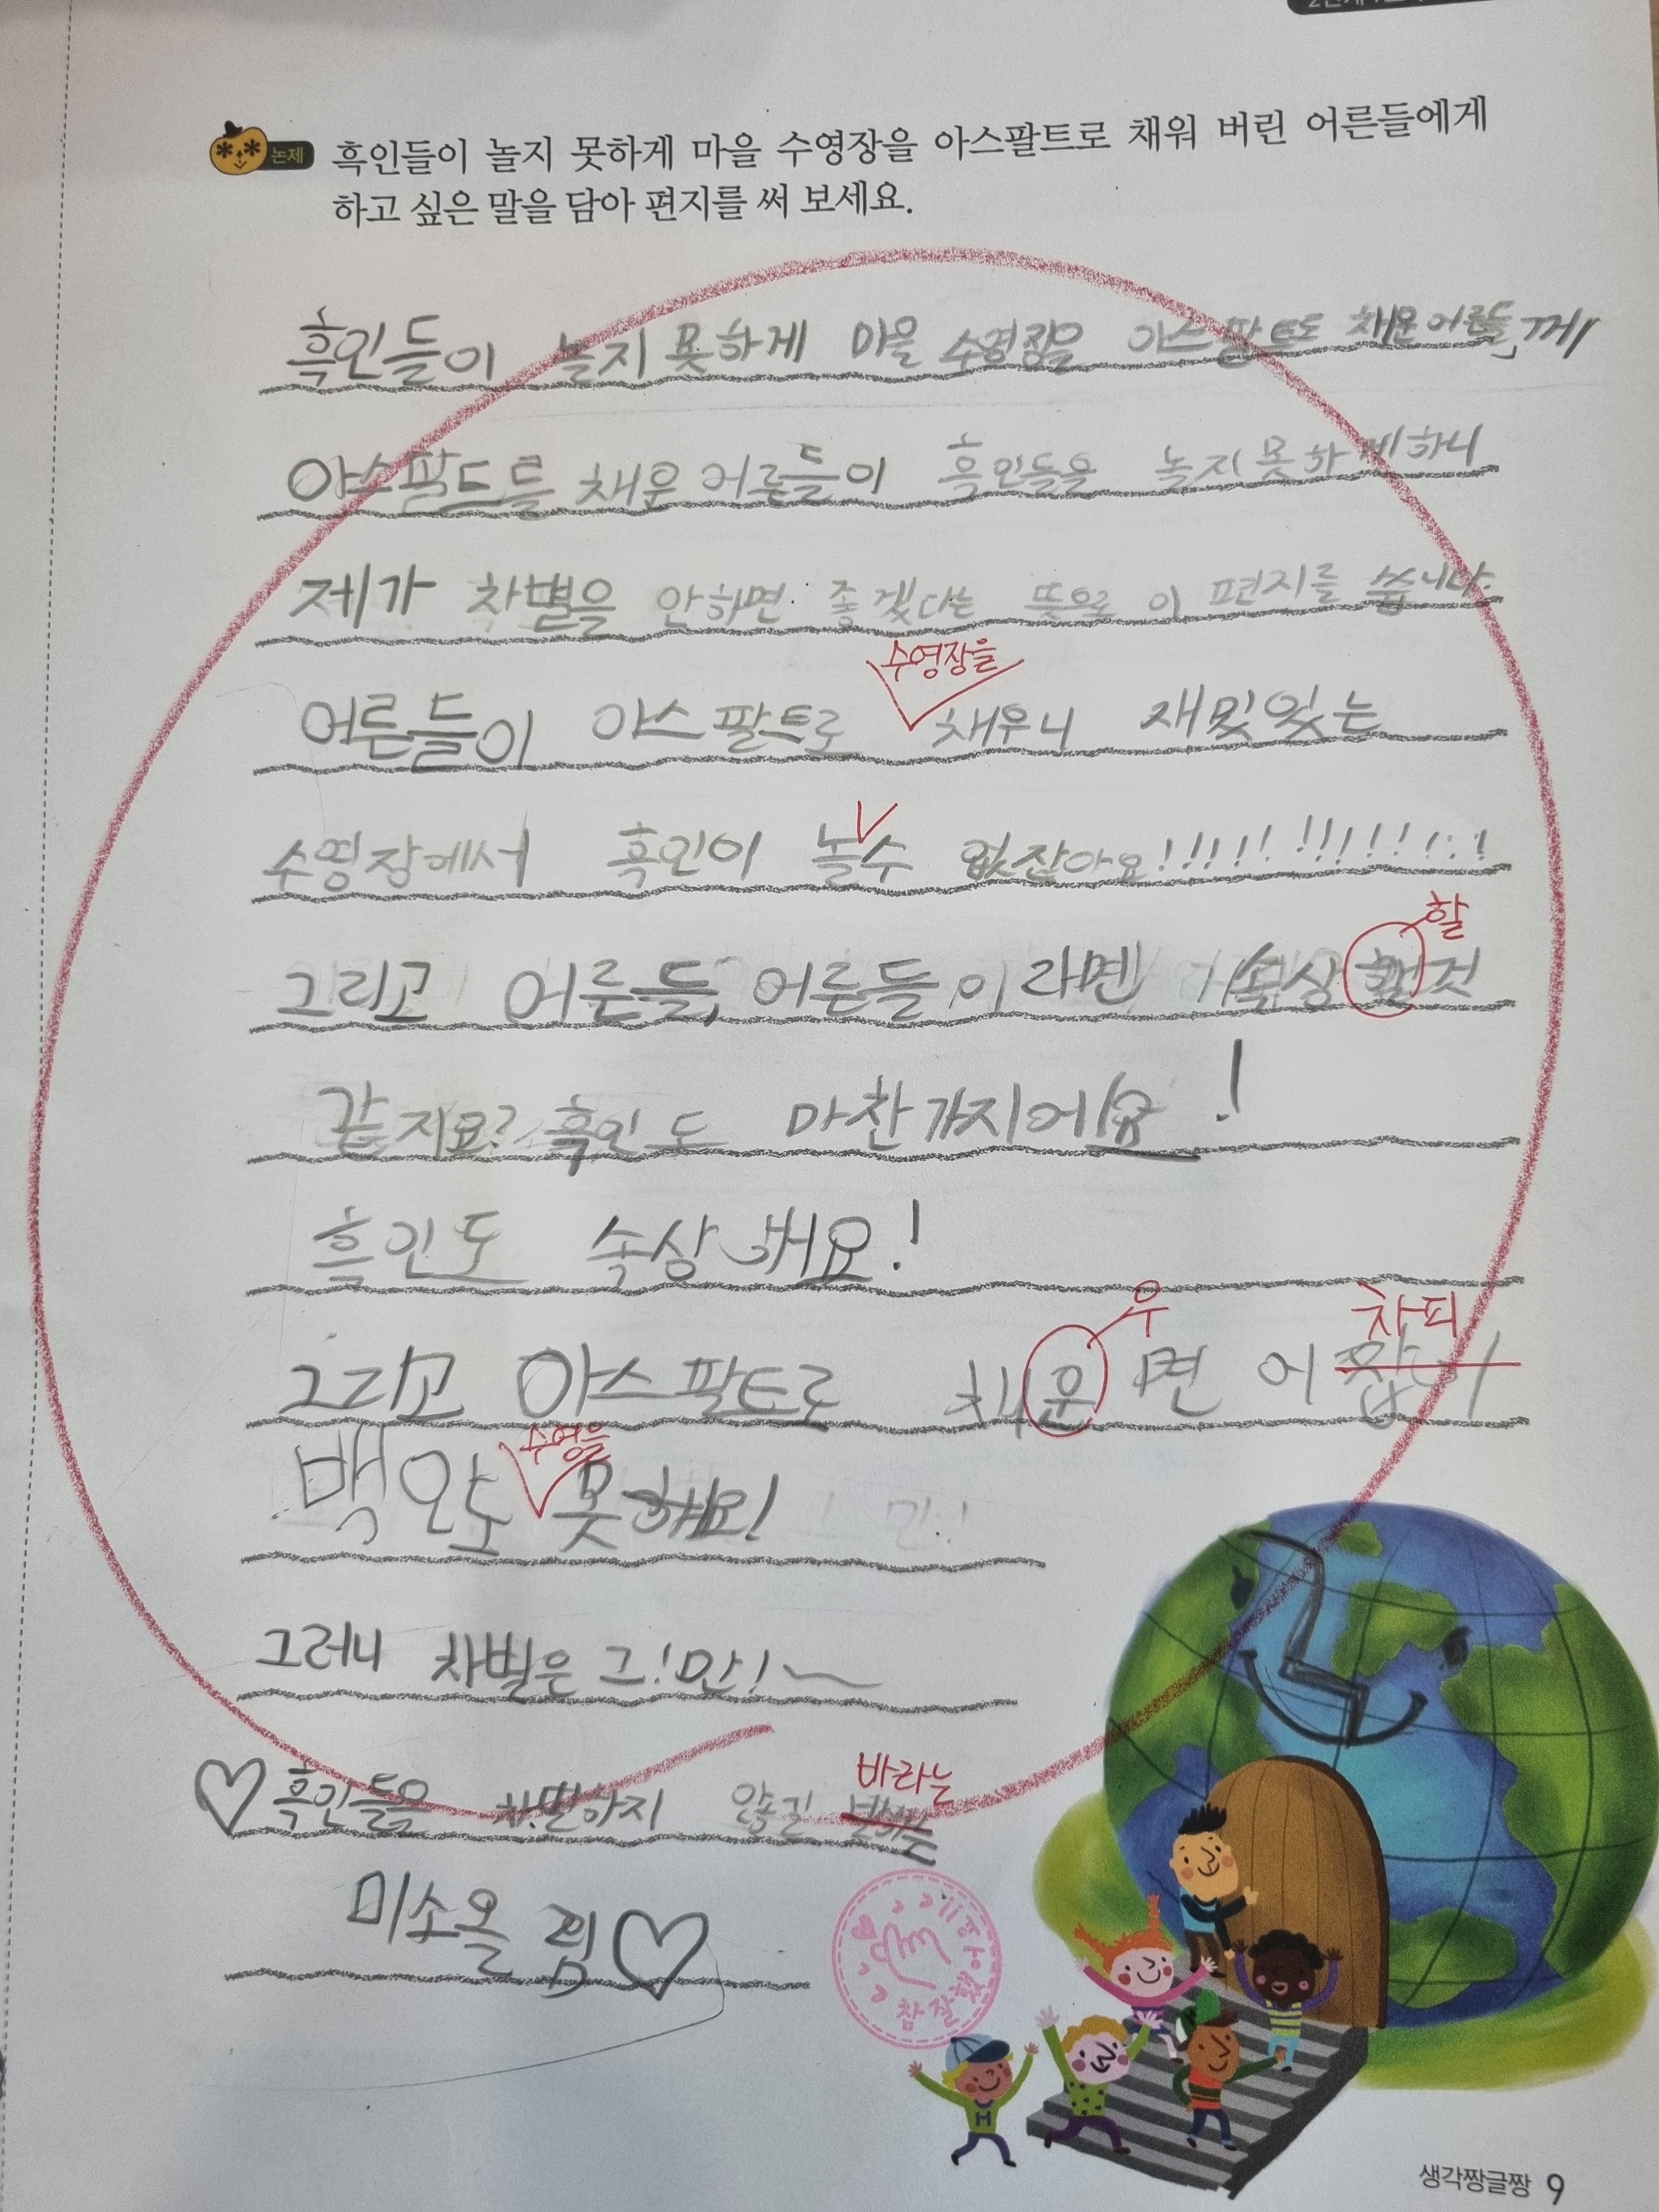 논제
흑인들이 놀지 못하게 마을 수영장을 아스팔트로 채워 버린 어른들에게
하고 싶은 말을 담아 편지를 써 보세요.
흑인들이 놀지 못하게 마을 수영장을 아스팔트로 채운 어른들께
아스팔트를 채운 어른들이 흑인들을 놀지 못하게 하니
제가 차별을 안하면 좋겠다는 뜻으로 이 편지를 씁니다.
수영장을
어른들이 아스팔트로 채우니 재밌있는
수영장에서 흑인이 놀수 없잖아요!!!!!!!!!!!!!!
할
그리고 어른들, 어른들이라면 속상 것
같지요? 흑인도 마찬가지에요!
흑인도 속상해요!
우 차피
그리고 아스팔트로 채운면 어
수영을
백인도 못해요!
그러니 차별은 그!만!~
바라는
♡흑인들을 차별하지 않길
미소올림♡
참 잘했어요
생각짱글짱 9